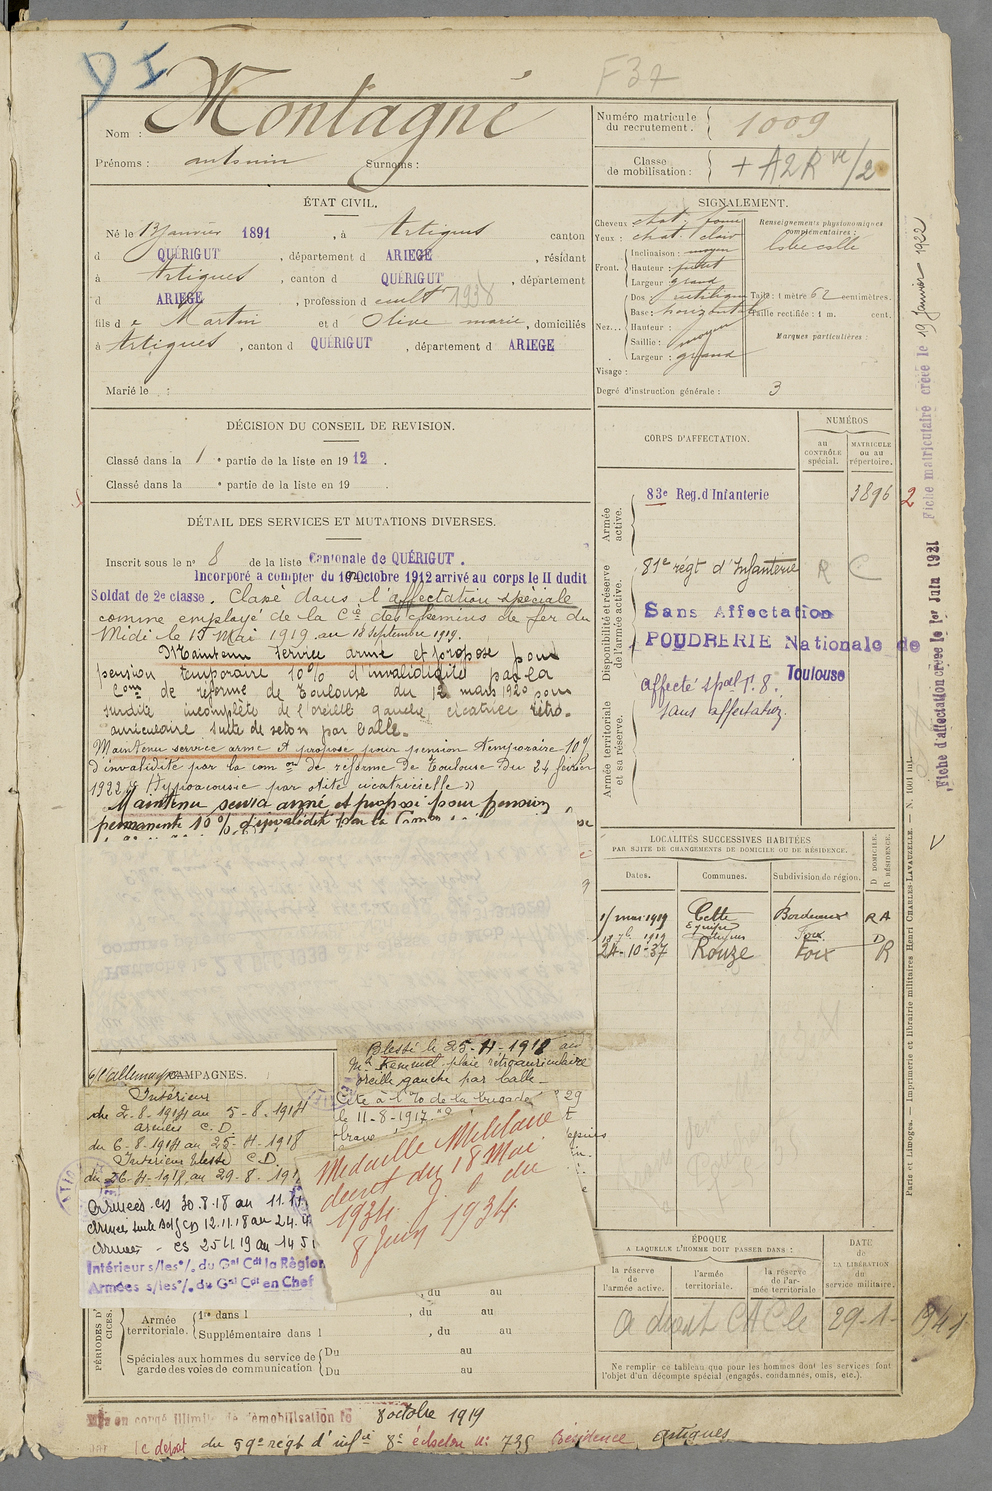 F37
Nom : Montagné
Prénoms : antonin Surnoms :
Numéro matricule du recrutement. 1009
Classe de mobilisation :
ÉTAT CIVIL.
Né le 13 janvier 1891, à Artigues canton
d QUÉRIGUT, département d ARIEGE, résidant
à Artigues, canton d QUÉRIGUT, département
d ARIEGE, profession d cultr 1938
fils d e Martin et d Olive marie, domiciliés
à Artigues, canton d QUÉRIGUT, département d ARIEGE
Marié le :
SIGNALEMENT.
Cheveux chat. foncé
Yeux : chat. clair
Front. Inclinaison : moyen
Hauteur : petit
Largeur grand
Nez... Dos rectiligne
Base : horizontale
Hauteur :
Saillie : moyen
Largeur : grand
Visage :
Renseignements physionomiques complémentaires :
lobe collé
Taille : 1 mètre 62 centimètres.
Taille rectifiée : 1 m. cent.
Marques particulières :
Degré d'instruction générale : 3
DÉCISION DU CONSEIL DE REVISION.
Classé dans la 1 e partie de la liste en 1912.
Classé dans la e partie de la liste en 19 .
DÉTAIL DES SERVICES ET MUTATIONS DIVERSES.
Inscrit sous le n° 8 de la liste Cantonale de QUÉRIGUT.
Incorporé à compter du 10 Octobre 1912 arrivé au corps le II dudit
Soldat de 2e classe. Classé dans l'affectation spéciale
comme employé de la Cie des chemins de fer du
Midi le 1er Mai 1919 au 18 Septembre 1919.
Maintenu service armé et proposé pour
pension temporaire 10% d'invalidité par la
Com. de réforme de Toulouse du 12 mars 1920 pour
surdité incomplète de l'oreille gauche, cicatrice rétro-
auriculaire suite de seton par balle.
Maintenu service armé et proposé pour pension temporaire 10%
d'invalidité par la com on de réforme de Toulouse du 24 février
1922 « Hypoacousie par otite cicatricielle »
Maintenu service armé et proposé pour pension
permanente 10% d'invalidité par la Comon
CORPS D'AFFECTATION.
NUMÉROS
au CONTRÔLE spécial.
MATRICULE ou au répertoire.
Armée active.
83e Reg. d'Infanterie 3896 2
Disponibilité et réserve de l'armée active.
81e régt d'Infanterie R C
Sans Affectation
POUDRERIE Nationale de
Toulouse
Affecté spal T. 8.
sans affectation.
Armée territoriale et sa réserve.
Fiche matriculaire créée le 19 Janvier 1922
Fiche d'affectation créée le 1er Juin 1921
LOCALITÉS SUCCESSIVES HABITÉES
PAR SUITE DE CHANGEMENTS DE DOMICILE OU DE RÉSIDENCE.
Dates. Communes. Subdivision de région. D DOMICILE. R RÉSIDENCE.
1r mai 1919 Cette Bordeaux RA
18 7b 1919 Artigues Foix D
24-10-37 Rouze Foix R
c/ l'allemagne CAMPAGNES.
Intérieur
du 2-8-1914 au 5-8-1914
armées C.D.
du 6-8-1914 au 25-4-1918
Intérieur blessé C.D.
du 26-4-1918 au 29-8-191
Armées CD 30.8.18 au 11.11
CD 12.11.18 au 24.4
Armées - CS 25.4.19 au 1 4 5 1
Intérieur s/les °/. du Gal Cdt la Région
Armées s/les °/. du Gal Cdt en Chef
Blessé le 25-4-1918 au
Mt Kemmel plaie rétroauriculaire
oreille gauche par balle.
Cité à l'70 de la brigade
le 11-8-1917
brave
Médaille Militaire
décret du 18 Mai
1934. J. O du
8 Juin 1934.
PÉRIODES D'EXERCICES.
, du au
Armée territoriale. 1re dans l , du au
Supplémentaire dans l , du au
Spéciales aux hommes du service de garde des voies de communication Du au
Du au
ÉPOQUE
A LAQUELLE L'HOMME DOIT PASSER DANS :
la réserve de l'armée active.
l'armée territoriale.
la réserve de l'armée territoriale
DATE DE LA LIBÉRATION du service militaire.
A droit CAC le 29-1-1941
Ne remplir ce tableau que pour les hommes dont les services font
l'objet d'un décompte spécial (engagés, condamnés, omis, etc.).
Paris et Limoges. — Imprimerie et librairie militaires Henri CHARLES-LAVAUZELLE. — N. 1001 int.
Mis en congé illimité de démobilisation le 8 octobre 1919
le dépôt du 59e régt d'infie 8e échelon n: 735 Résidence Artigues